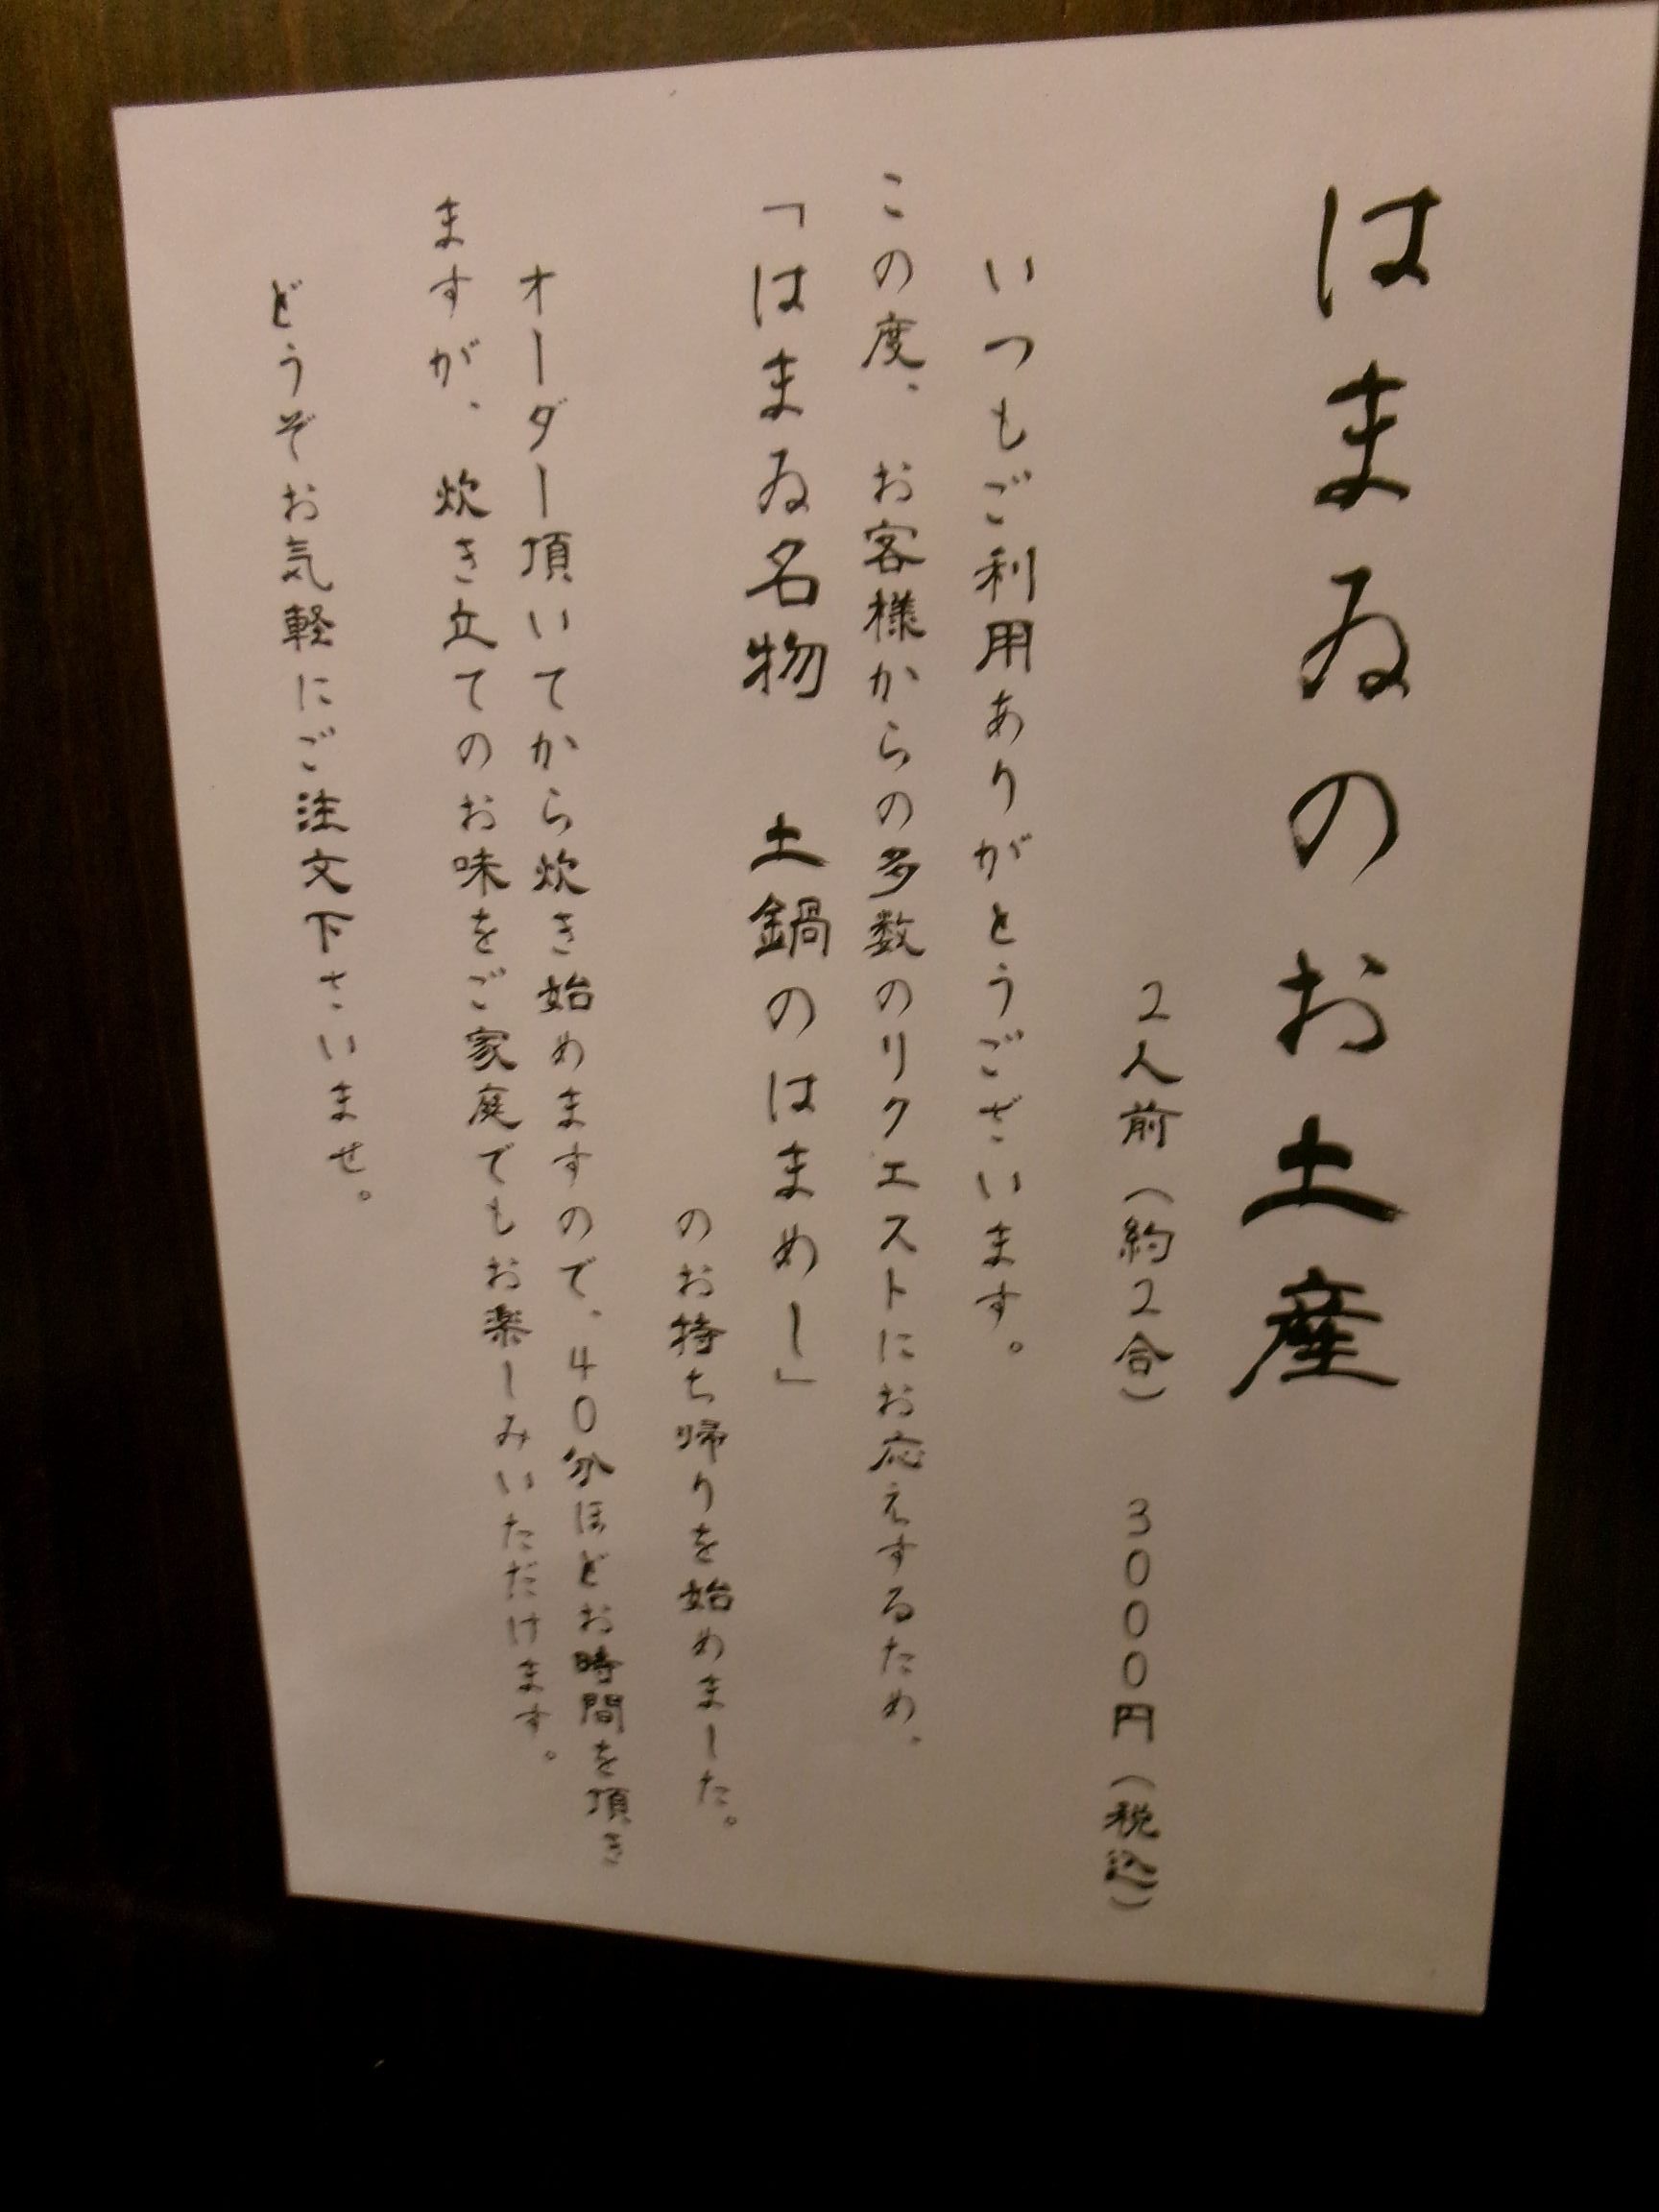 はまゐのお土産
２人前（約２合）　３０００円（税込）
いつもご利用ありがとうございます。
この度、お客様からの多数のリクエストにお応えするため、
「はまゐ名物　土鍋のはまめし」
のお持ち帰りを始めました。
オーダー頂いてから炊き始めますので、４０分ほどお時間を頂き
ますが、炊き立てのお味をご家庭でもお楽しみいただけます。
どうぞお気軽にご注文下さいませ。